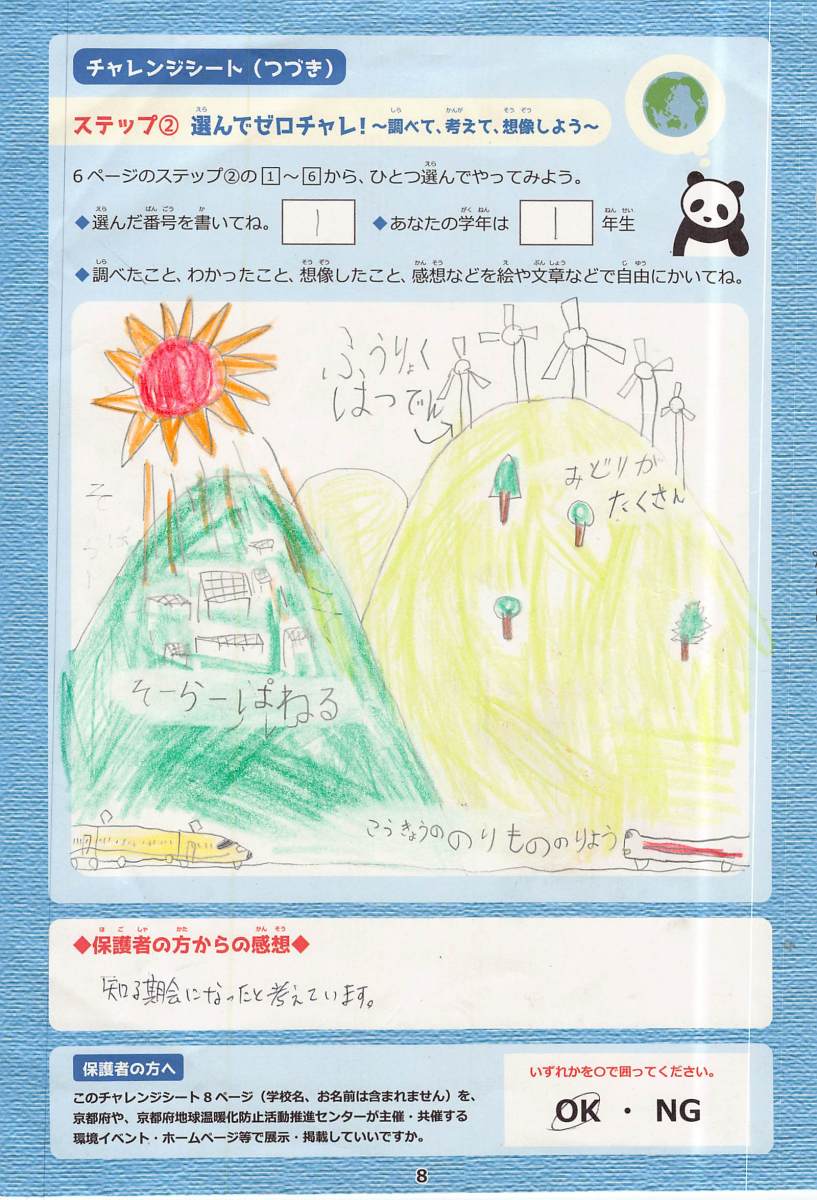 チャレンジシート（つづき）
ステップ② 選んでゼロチャレ！～調べて、考えて、想像しよう～
6ページのステップ②の1～6から、ひとつ選んでやってみよう。
◆選んだ番号を書いてね。 1 ◆あなたの学年は 1 年生
◆調べたこと、わかったこと、想像したこと、感想などを絵や文章などで自由にかいてね。
ふうりょく
はつでん
みどりが
たくさん
そーらーぱねる
こうきょうののりもののりよう
◆保護者の方からの感想◆
知る期会になったと考えています。
保護者の方へ
いずれかを○で囲ってください。
このチャレンジシート8ページ（学校名、お名前は含まれません）を、
京都府や、京都府地球温暖化防止活動推進センターが主催・共催する
環境イベント・ホームページ等で展示・掲載していいですか。
OK ・ NG
8